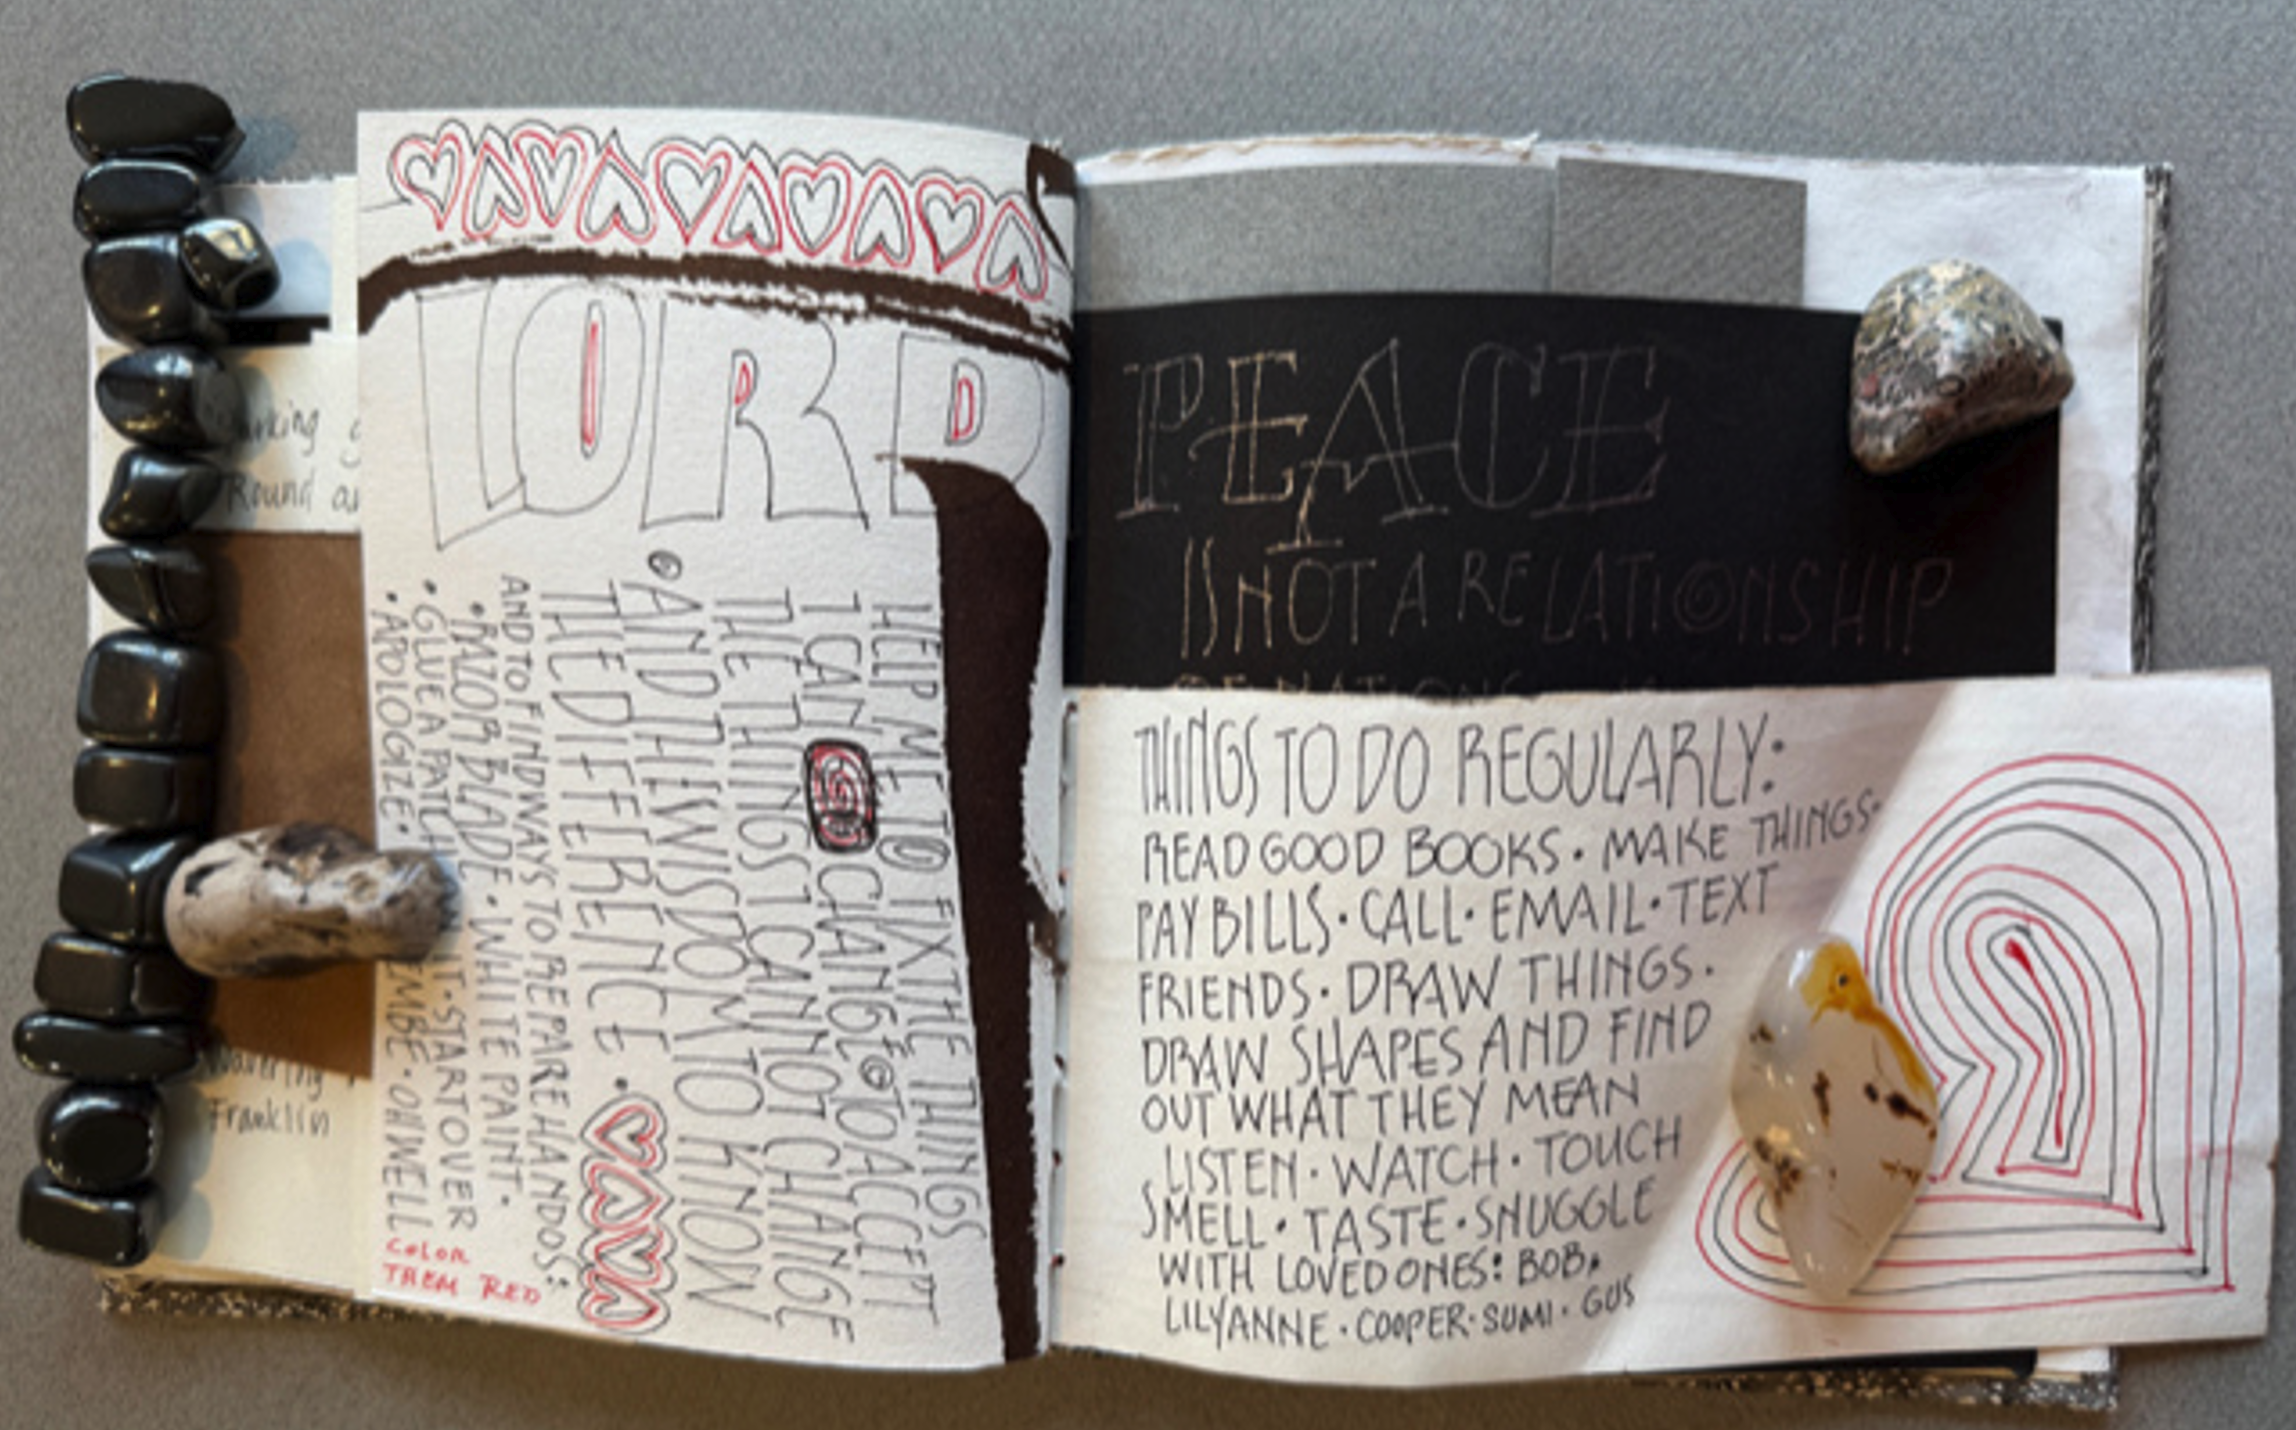 LORD
HELP ME TO FIX THE THINGS
I CAN CHANGE TO ACCEPT
THE THINGS I CANNOT CHANGE
AND THE WISDOM TO KNOW
THE DIFFERENCE •
AND TO FIND WAYS TO
• RAZOR BLADE • WHITE PAINT •
• GLUE A PATCH IT • START OVER
• APOLOGIZE • OH WELL
COLOR
THEM RED
Round
Wavering
Franklin
PEACE
IS NOT A RELATIONSHIP
OF NATIONS
THINGS TO DO REGULARLY:
READ GOOD BOOKS • MAKE THINGS •
PAY BILLS • CALL • EMAIL • TEXT
FRIENDS • DRAW THINGS •
DRAW SHAPES AND FIND
OUT WHAT THEY MEAN
LISTEN • WATCH • TOUCH
SMELL • TASTE • SNUGGLE
WITH LOVED ONES: BOB •
LILYANNE • COOPER • SUMI • GUS